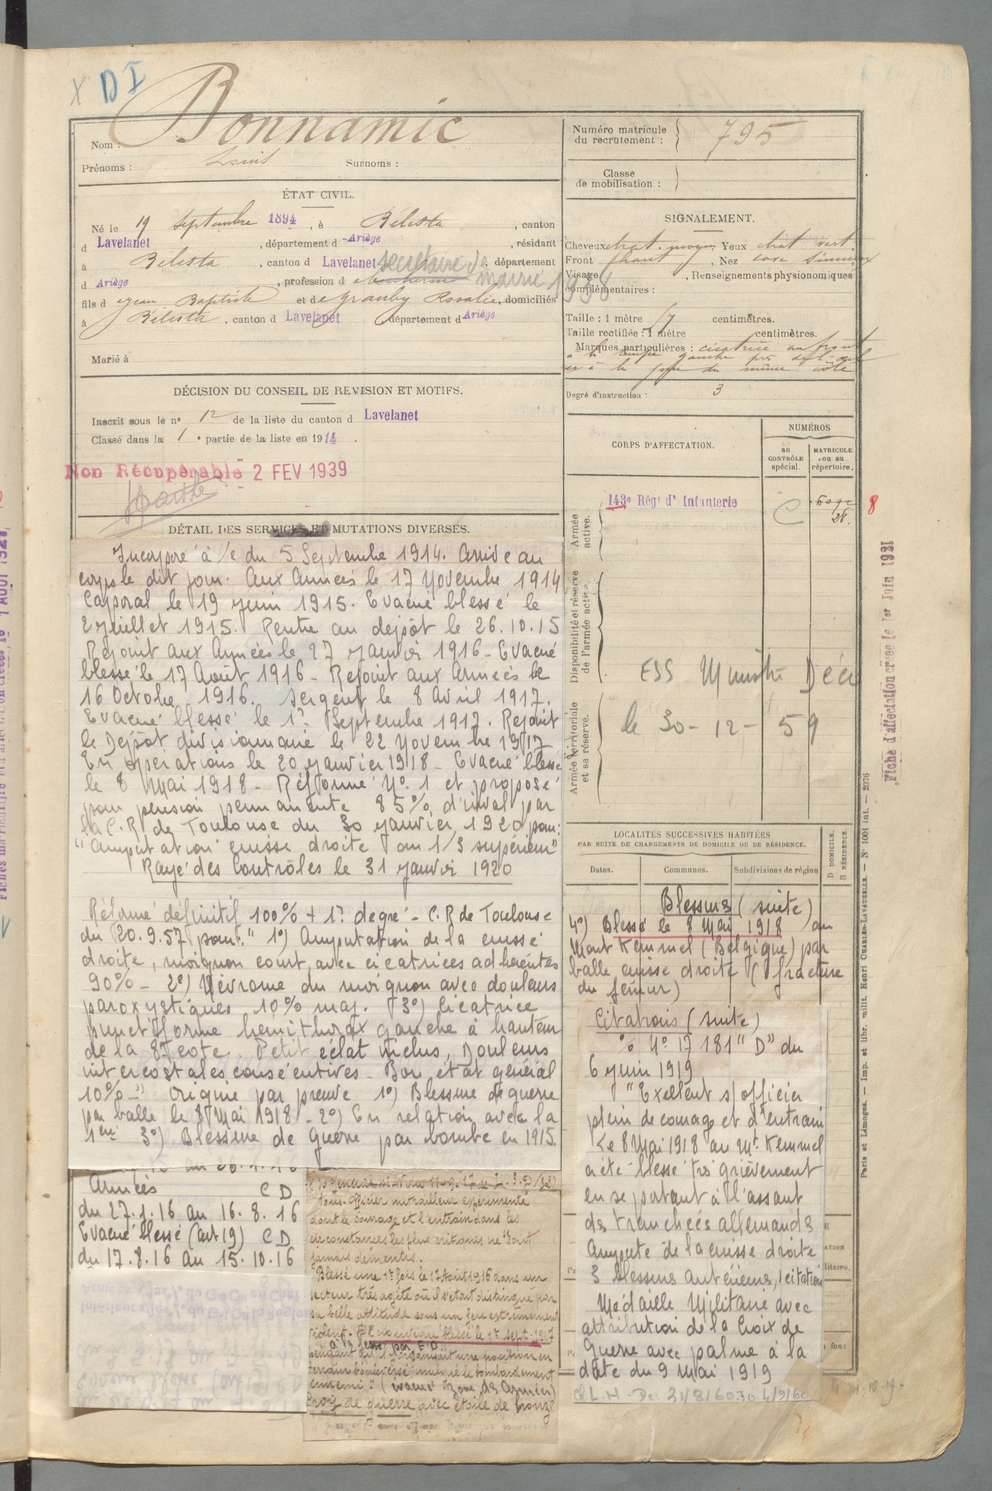 X DI
Nom : Bonnamic
Prénoms : Louis Surnoms :
ÉTAT CIVIL.
Né le 19 septembre 1894, à Bélesta, canton
d Lavelanet, département d Ariège, résidant
à Bélesta, canton d Lavelanet, département
d Ariège, profession d secrétaire de mairie 1938
fils d Jean Baptiste et de Granby Rosalie, domiciliés
à Bélesta, canton d Lavelanet département d Ariège
Marié à
DÉCISION DU CONSEIL DE REVISION ET MOTIFS.
Inscrit sous le n° 12 de la liste du canton d Lavelanet
Classé dans la 1e partie de la liste en 1914.
Non Récupérable 2 FEV 1939
DÉTAIL DES SERVICES ET MUTATIONS DIVERSES.
Incorporé à /c du 5 Septembre 1914. Arrivé au
corps le dit jour. Aux Armées le 17 Novembre 1914
Caporal le 19 juin 1915. Evacué blessé le
2 juillet 1915. Rentré au dépôt le 26.10.15
Rejoint aux Armées le 27 janvier 1916 - Evacué
blessé le 17 Août 1916 - Rejoint aux Armées le
16 Octobre 1916. Sergent le 8 Avril 1917.
Evacué blessé le 1er Septembre 1917. Rejoint
le Dépôt divisionnaire le 22 Novembre 1917
En opérations le 20 janvier 1918 - Evacué blessé
le 8 Mai 1918 - Réformé N° 1 et proposé
pour pension permanente 85% d'inval par
la C.R. de Toulouse du 30 janvier 1920 pour:
"Amputation cuisse droite au 1/3 supérieur"
Rayé des Contrôles le 31 janvier 1920
Réformé définitif 100% + 1er degré - C.R de Toulouse
du 20.9.57 pour: " 1°) Amputation de la cuisse
droite, moignon court, avec cicatrices adhérentes
90% - 2°) Névrome du moignon avec douleurs
paroxystiques 10% maj. 3°) Cicatrice
punctiforme hemithorax gauche à hauteur
de la 8e cote. Petit éclat inclus, Douleurs
intercostales consécutives - Bon état général
10% -" Origine par preuve 1°) Blessure de guerre
par balle le 8 Mai 1918 - 2°) En relation avec la
1ere 3°) Blessure de Guerre par bombe en 1915.
Armées C D
du 27.1.16 au 16.8.16
Evacué blessé (art 19) C D
du 17.8.16 au 15.10.16
Sous-officier mitrailleur expérimenté
dont le courage et l'entrain dans les
circonstances les plus critiques ne se sont
jamais démentis.
Blessé une 1re fois le 17 Août 1916 dans un
secteur très agité où il s'était distingué par
sa belle attitude sous un feu extrêmement
violent. De nouveau blessé le 1er sept. 1917
pendant qu'il organisait une position en
terrain bouleversé malgré le bombardement
ennemi. (Evacué zone des Armées)
Croix de guerre avec étoile de bronze
Numéro matricule du recrutement : 795
Classe de mobilisation :
SIGNALEMENT.
Cheveux chat. moyen Yeux chat vert
Front fuyant, Nez cave sinueux
Visage, Renseignements physionomiques
complémentaires :
Taille : 1 mètre 67 centimètres.
Taille rectifiée : 1 mètre centimètres.
Marques particulières : cicatrice au front
à la tempe gauche près de l'œil
et à la joue du même côté
Degré d'instruction : 3
CORPS D'AFFECTATION.
NUMÉROS
AU CONTRÔLE spécial.
MATRICULE ou au répertoire.
Armée active.
143e Régt d'Infanterie C
8
Disponibilité et réserve de l'armée active.
Armée territoriale et sa réserve.
Décé
le 30-12-59
Fiche d'affectation créée le 1er Juin 1921
LOCALITÉS SUCCESSIVES HABITÉES
PAR SUITE DE CHANGEMENTS DE DOMICILE OU DE RÉSIDENCE.
Dates. Communes. Subdivisions de région
D DOMICILE. R RÉSIDENCE.
Blessures (suite)
4°) Blessé le 8 Mai 1918 au
Mont Kemmel (Belgique) par
balle cuisse droite (fracture
du fémur)
Citations (suite)
% N° 17 181 "D" du
6 juin 1919
"Excellent s/officier
plein de courage et d'entrain
Le 8 Mai 1918 au Mt. Kemmel
a été blessé très grièvement
en se portant à l'assaut
des tranchées allemandes
Amputé de la cuisse droite
3 blessures antérieures, 1 citation
Médaille Militaire avec
attribution de la Croix de
Guerre avec palme à la
date du 9 Mai 1919
Paris et Limoges. — Imp. et libr. milit. Henri Charles-Lavauzelle. — N° 1001 int. — 2976